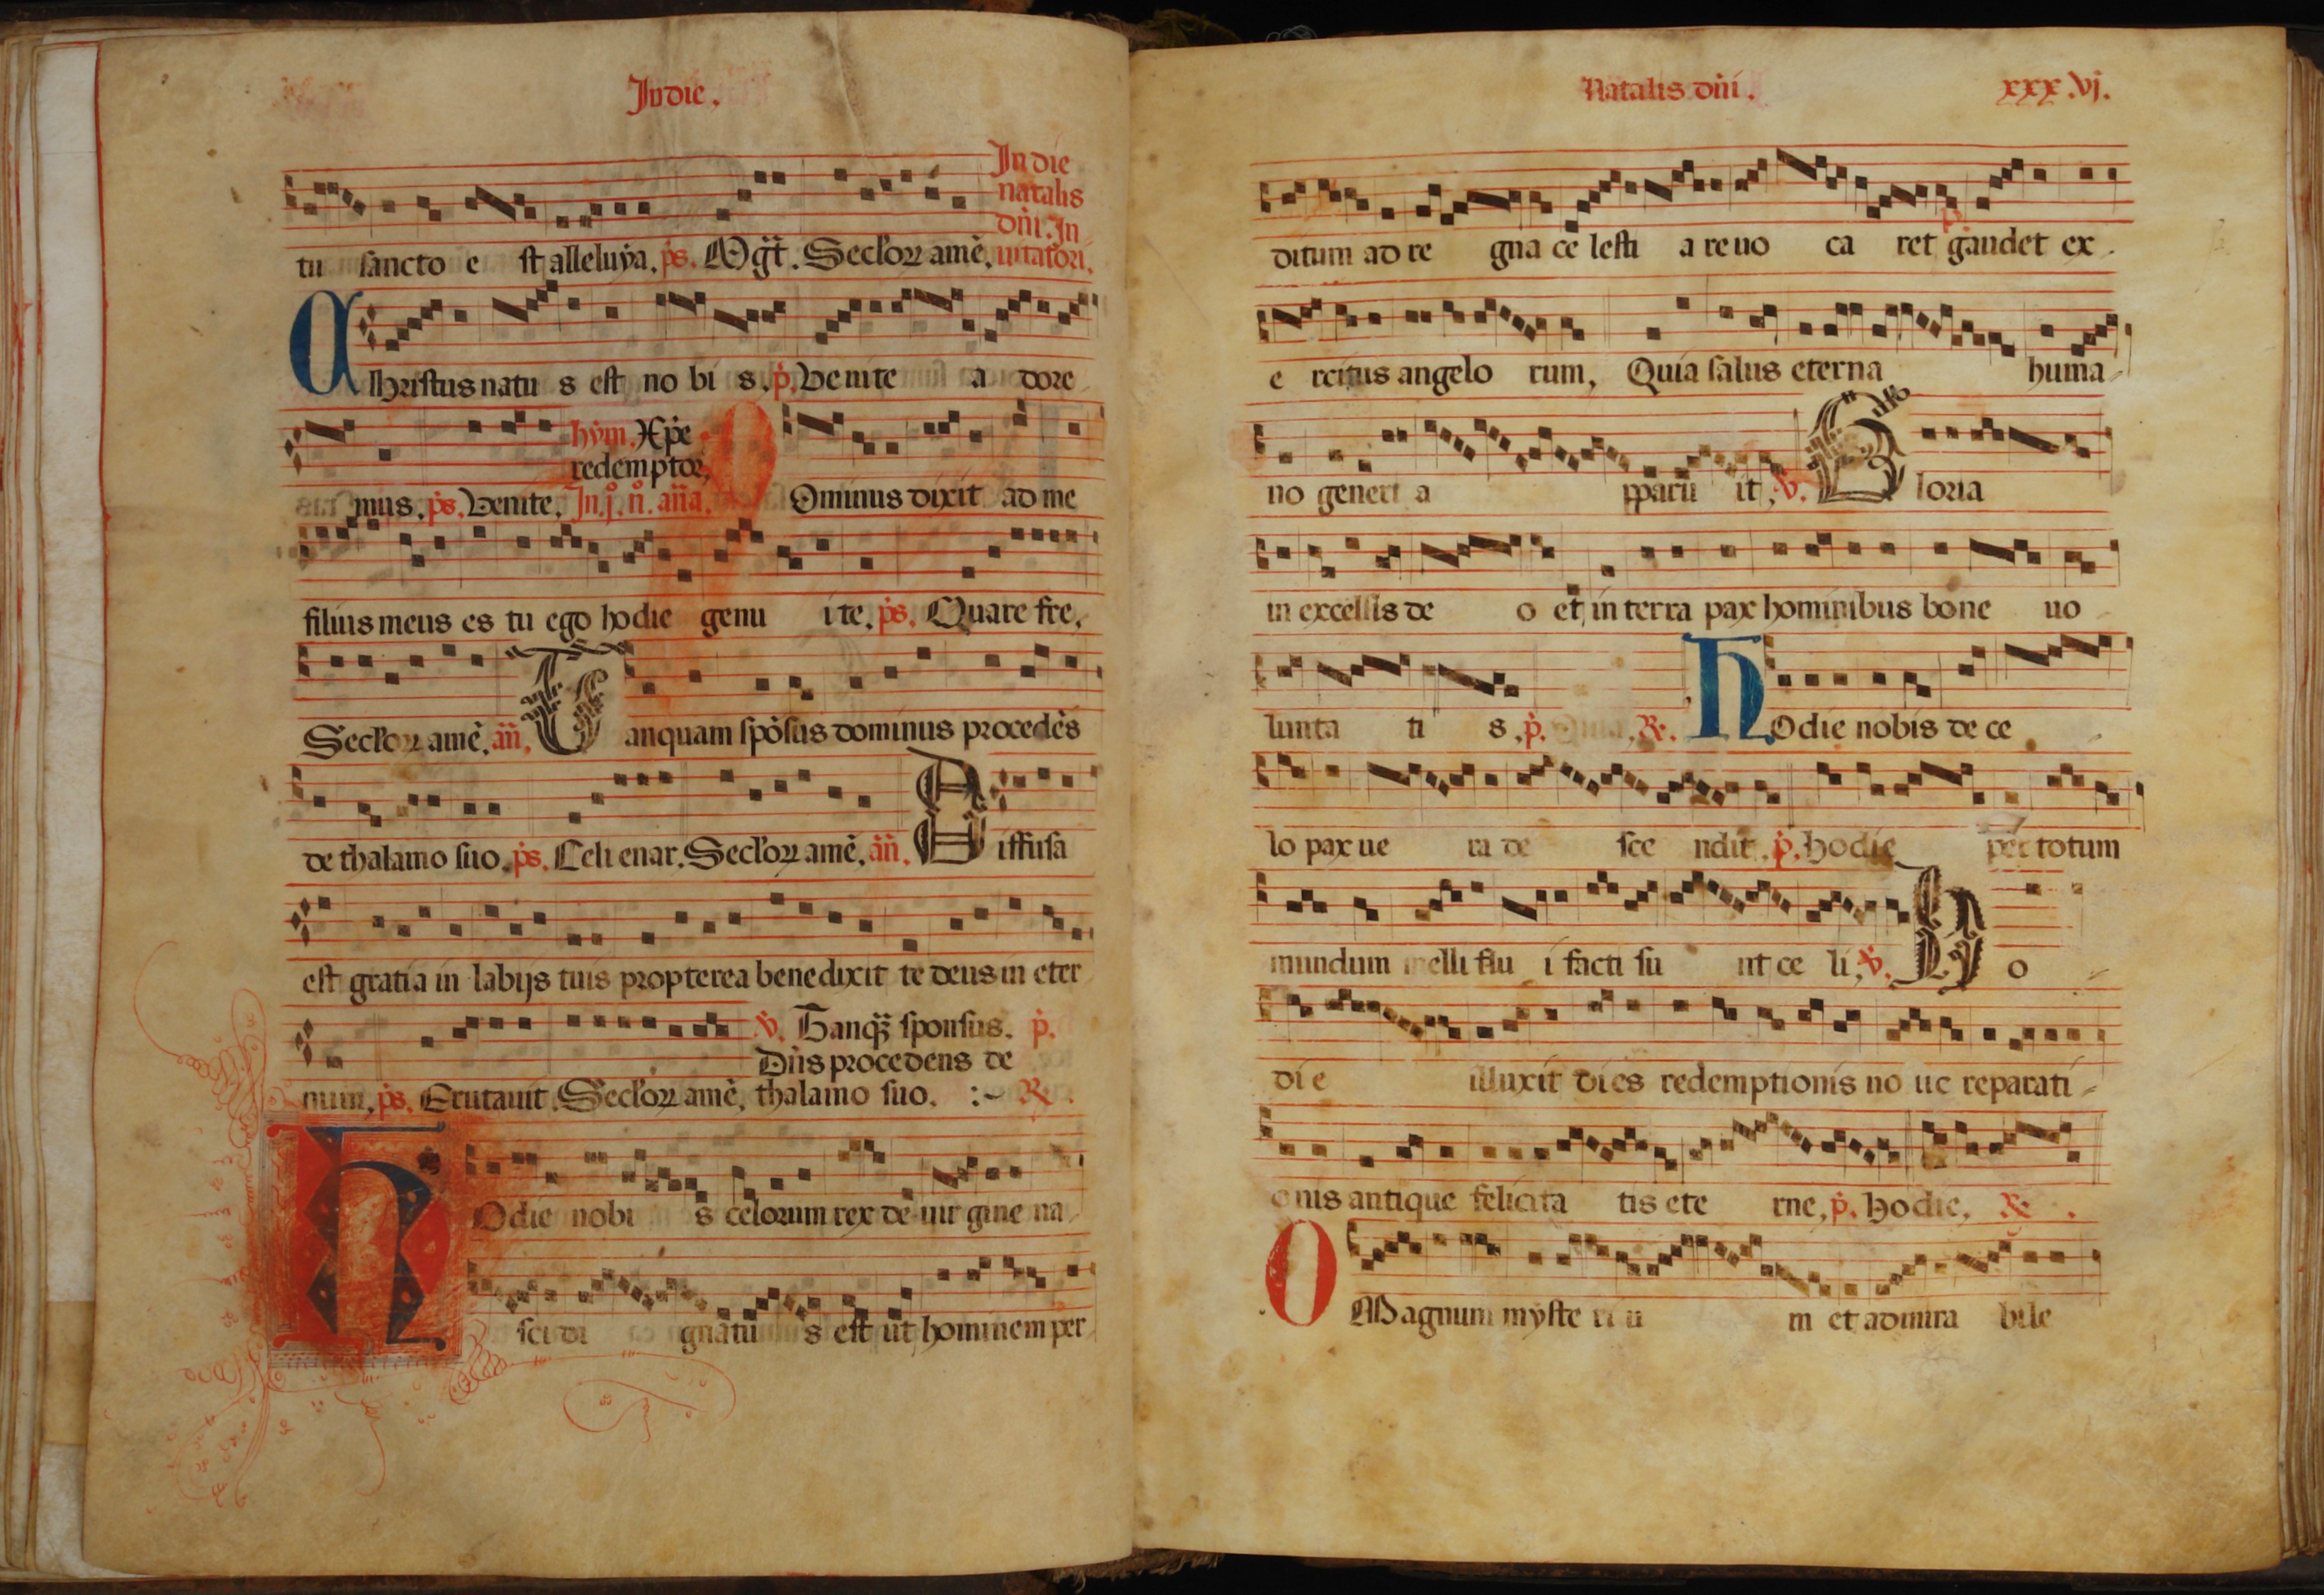 In die.
In die
natalis
dñi. In
uitatori.
tu sancto e st alleluya. ps. Mgt. Seclorz amē.
Christus natu s est no bi s. p. Venite a dore
hym. Xpe
redemptor,
mus. ps. Venite. In. j. n. añа. Dominus dixit ad me
filius meus es tu ego hodie genu i te. ps. Quare fre.
Seclorz amē. añ. Tanquam spōsus dominus procedēs
de thalamo suo. ps. Celi enar. Seclorz amē. añ. Diffusa
est gratia in labijs tuis propterea benedixit te deus in eter
V. Tanqz sponsus. p.
Dñs procedens de
num. ps. Eructauit. Seclorz amē. thalamo suo. :~ R.
HOdie nobi s celorum rex de uir gine na
sci di gnatu s est ut hominem per
Natalis dñi.
xxx.vj.
ditum ad re gna ce lesti a reuo ca ret p. gaudet ex
e rcitus angelo rum, Quia salus eterna huma
no generi a pparu it. V. Gloria
in excelsis de o et in terra pax hominibus bone uo
lunta ti s. p. Quia. R. HOdie nobis de ce
lo pax ue ra de sce ndit. p. Hodie per totum
mundum melli flu i facti su nt ce li. V. Ho
di e illuxit dies redemptionis no ue reparati
onis antique felicita tis ete rne. p. Hodie. R.
O Magnum myste ri u m et admira bile